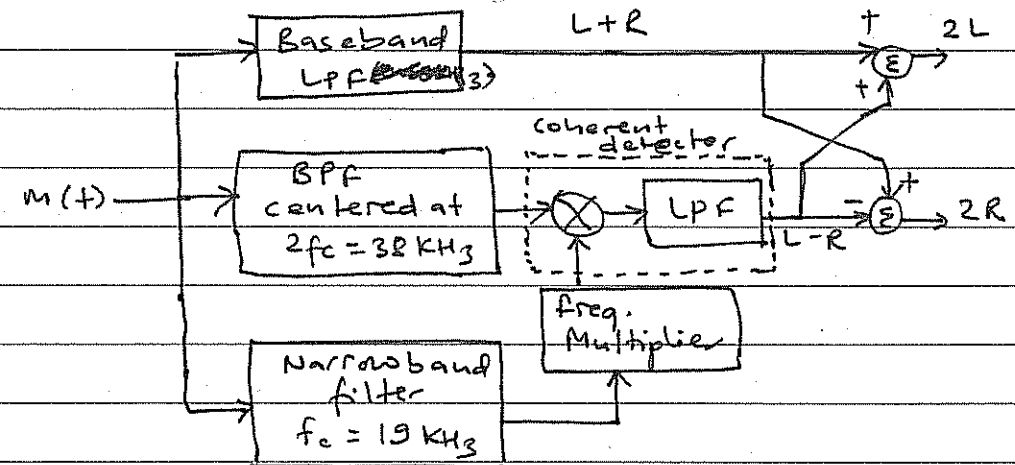 Baseband
LPF 3)
L+R
+
2L
Σ
+
coherent
detector
m(t)
BPF
centered at
2fc = 38 KHz
LPF
L-R
+
-
Σ
2R
freq.
Multiplier
Narrowband
filter
fc = 19 KHz